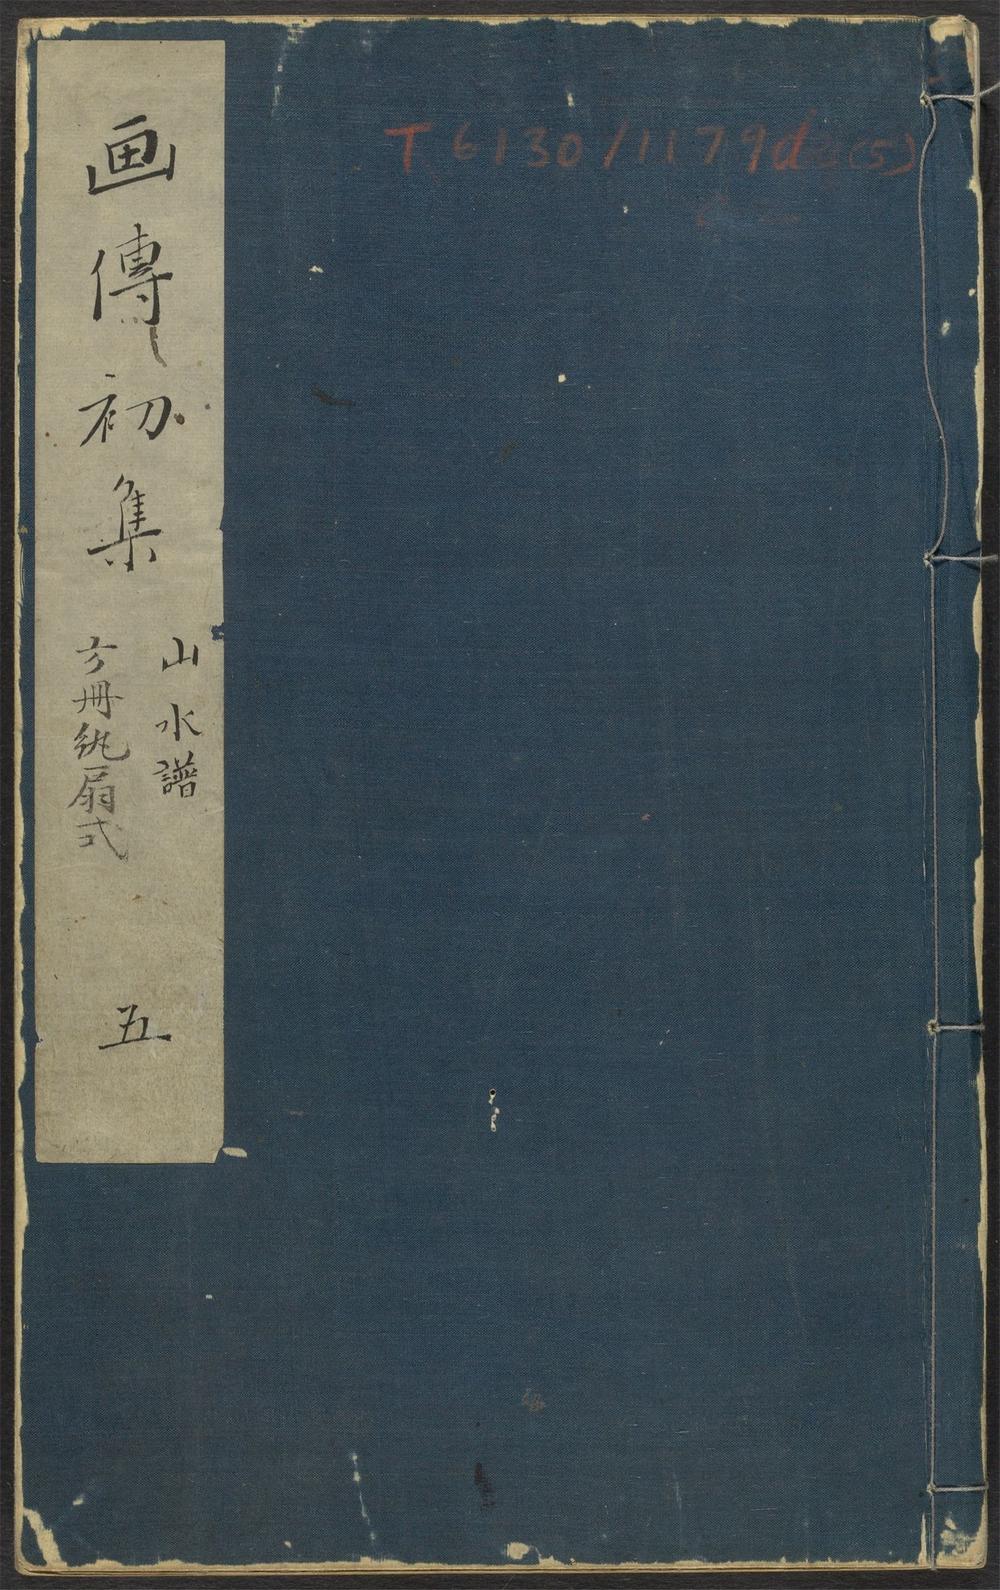 画傳初集
山水譜
方冊紈扇式
五
T 6130/1179d (5)